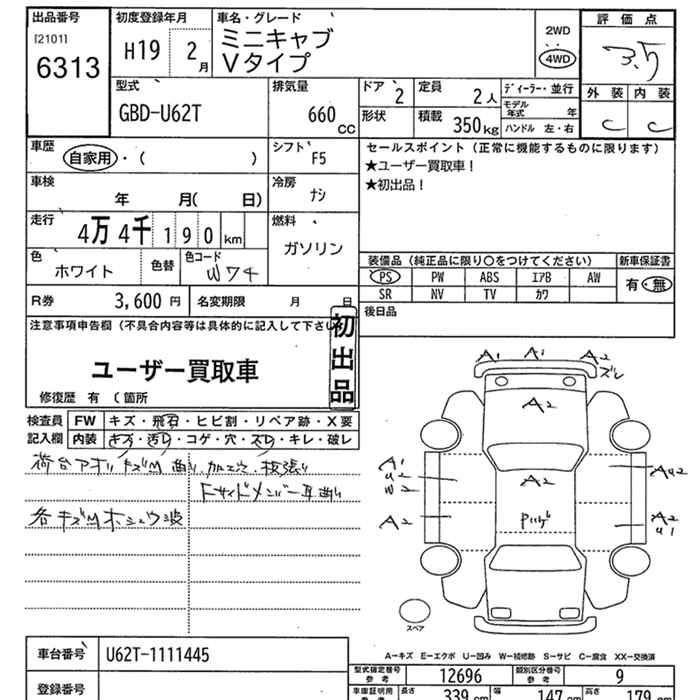 出品番号 初度登録年月 車名・グレード 評価点
[2101]
6313 H19 2月 ミニキャブ
Vタイプ 2WD
4WD 3.5
外装 内装
C C
型式 排気量 ドア 定員 ディーラー・並行
GBD-U62T 660cc 2 2人 モデル年式 年
形状 積載 350kg ハンドル 左・右
車歴 自家用・( ) シフト F5 セールスポイント(正常に機能するものに限ります)
★ユーザー買取車!
★初出品!
車検 年 月( 日) 冷房 ナシ
走行 4万4千190km 燃料 ガソリン
色 ホワイト 色替 色コード W74
装備品(純正品に限り○をつけてください) 新車保証書
PS PW ABS エアB AW 有・無
SR NV TV カワ
R券 3,600円 名変期限 月 日 後日品
注意事項申告欄(不具合内容等は具体的に記入して下さい
初出品
ユーザー買取車
修復歴 有 ( 箇所
検査員 FW キズ・飛石・ヒビ割・リペア跡・X要
記入欄 内装 キズ・汚レ・コゲ・穴・スレ・キレ・破レ
荷台アオリ キズM 曲り 加工穴 板張り
各キズMホシュウ波
A1 A1 A2
ズレ
A2
A1
U2
W2
A2
AU2
A2
A2
U1
スペア
A-キズ E-エクボ U-凹み W-補修跡 S-サビ C-腐食 XX-交換済
車台番号 U62T-1111445
型式指定番号 参考 12696 類別区分番号 参考 9
登録番号
車庫証明用 参考 長さ 339cm 幅 147cm 高さ 179cm